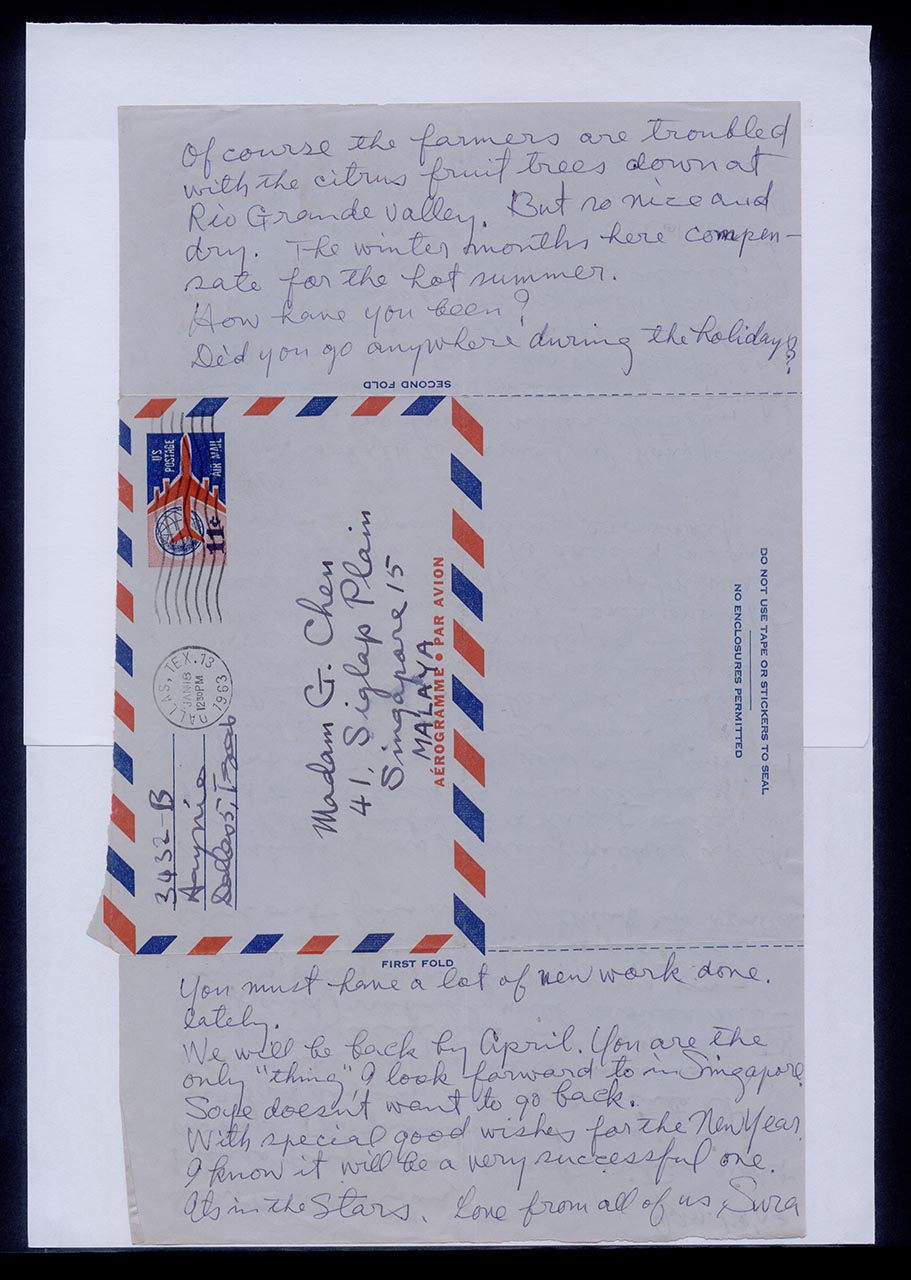 Of course the farmers are troubled
with the citrus fruit trees down at
Rio Grande Valley. But so nice and
dry. The winter months here compen-
sate for the hot summer.
How have you been?
Did you go anywhere during the holidays?
SECOND FOLD
US
POSTAGE
AIR MAIL
11¢
DALLAS, TEX. 13
JAN 18
12 30 PM
1963
3432-B
Haynie
Dallas 5, Texas
Madam G. Chen
41, Siglap Plain
Singapore 15
MALAYA
AÉROGRAMME • PAR AVION
DO NOT USE TAPE OR STICKERS TO SEAL
NO ENCLOSURES PERMITTED
FIRST FOLD
You must have a lot of new work done.
lately.
We will be back by April. You are the
only "thing" I look forward to in Singapore
doesn't want to go back.
With special good wishes for the New Year
I know it will be a very successful one.
Its in the Stars. Love from all of us,